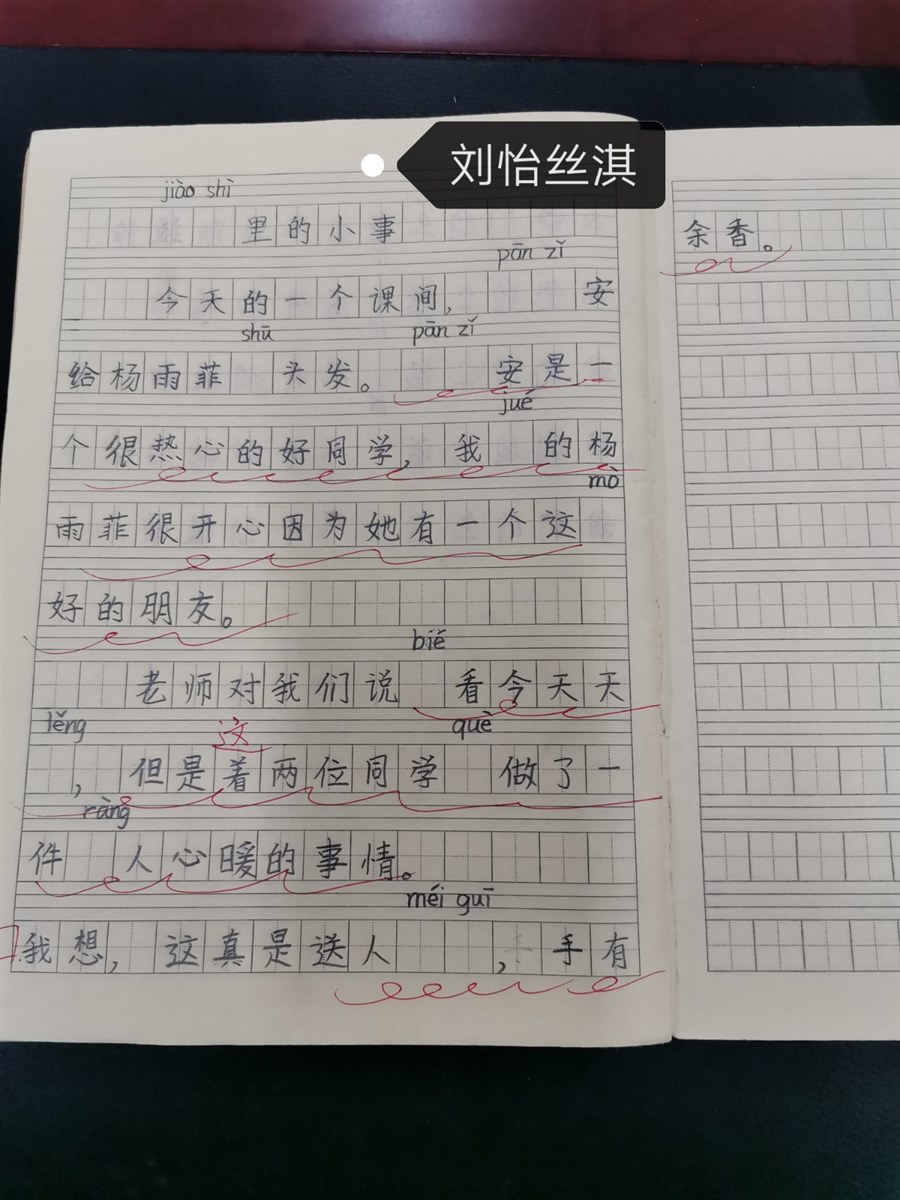 刘怡丝淇
jiào shì
里的小事
pān zǐ
今天的一个课间，安
shū pān zǐ
给杨雨菲头发。安是一
jué
个很热心的好同学，我的杨
mò
雨菲很开心因为她有一个这
好的朋友。
bié
老师对我们说看今天天
lěng 这 què
，但是着两位同学做了一
ràng
件人心暖的事情。
méi guī
我想，这真是送人，手有
余香。